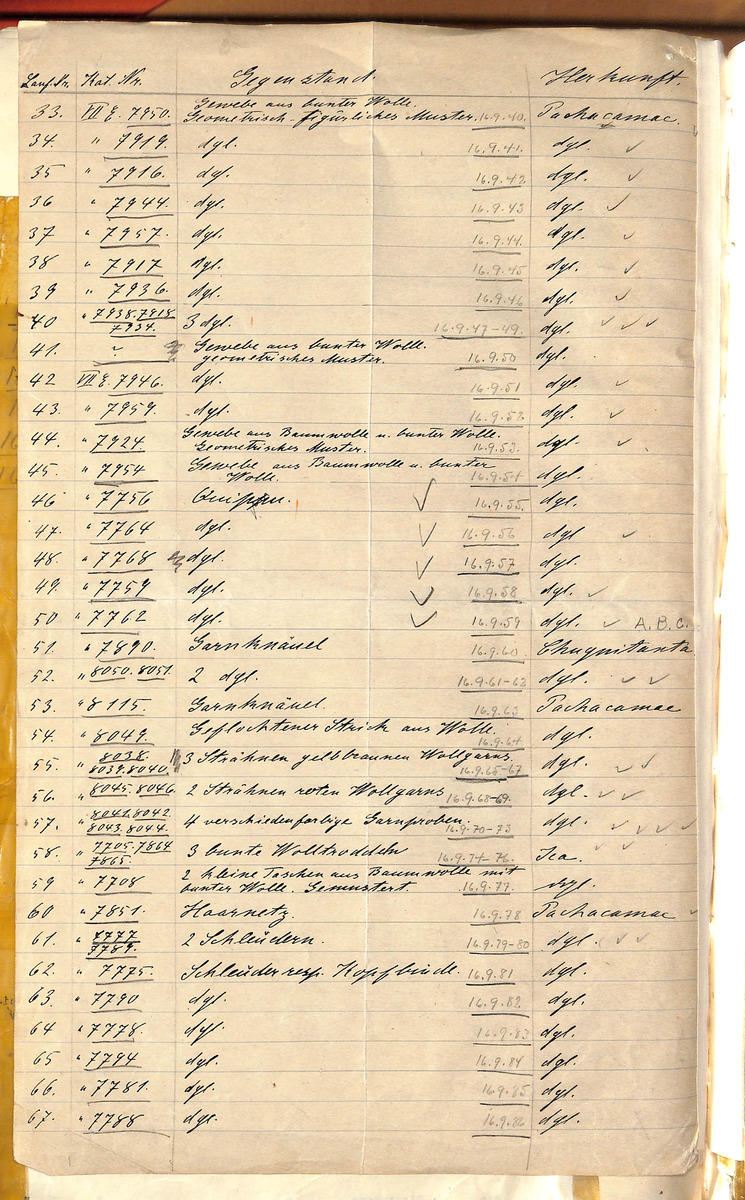 Lauf. Nr. Kat. Nr. Gegenstand. Herkunft.
33. VII E. 7950. Gewebe aus bunter Wolle.
Geometrisch-figürliches Muster. 16.9.40. Pachacamac.
34. " 7919. dgl. 16.9.41. dgl. ✓
35 " 7916. dgl. 16.9.42 dgl. ✓
36 " 7944. dgl. 16.9.43 dgl. ✓
37 " 7957. dgl. 16.9.44. dgl. ✓
38 " 7917 dgl. 16.9.45 dgl. ✓
39 " 7936. dgl. 16.9.46 dgl. ✓
40 " 7938.7918
7934. 3 dgl. 16.9.47-49. dgl. ✓ ✓ ✓
41. " Gewebe aus bunter Wolle.
geometrisches Muster. 16.9.50 dgl.
42 VII E. 7946. dgl. 16.9.51 dgl. ✓
43. " 7959. dgl. 16.9.52 dgl. ✓
44. " 7924 Gewebe aus Baumwolle u. bunter Wolle.
Geometrisches Muster. 16.9.53. dgl. ✓
45. " 7954 Gewebe aus Baumwolle u. bunter
Wolle. 16.9.54 dgl.
46 " 7756 ✓ 16.9.55. dgl.
47. " 7764 dgl. ✓ 16.9.56 dgl ✓
48. " 7768 dgl. ✓ 16.9.57 dgl.
49. " 7759 dgl. ✓ 16.9.58 dgl. ✓
50 " 7762 dgl. ✓ 16.9.59 dgl. ✓ A.B.C.
51. " 7890. Garnknäuel 16.9.60. Chuquitanta.
52. " 8050. 8051. 2 dgl. 16.9.61-62 dgl. ✓ ✓
53. " 8115. Garnknäuel. 16.9.63 Pachacamac
54. " 8049. Geflochtener Strick aus Wolle. 16.9.64 dgl.
55. " 8038.
8039.8040. 3 Strähnen gelbbraunen Wollgarns. 16.9.65-67 dgl. ✓ ✓
56. " 8045. 8046. 2 Strähnen roten Wollgarns 16.9.68-69. dgl. ✓ ✓
57. " 8041.8042.
8043. 8044. 4 verschiedenfarbige Garnproben. 16.9.70-73 dgl. ✓ ✓ ✓ ✓
58. " 7705. 7864
7865. 3 bunte Wolltroddeln 16.9.74-76. Ica. ✓ ✓
59 " 7708 2 kleine Taschen aus Baumwolle mit
bunter Wolle. Gemustert. 16.9.77. dgl.
60 " 7851. Haarnetz. 16.9.78 Pachacamac ✓
61. " 7777
7789. 2 Schleüdern. 16.9.79-80 dgl. ✓ ✓
62. " 7775. Schleüder resp. Kopfbinde. 16.9.81 dgl.
63. " 7790 dgl. 16.9.82 dgl.
64 " 7778. dgl. 16.9.83 dgl.
65 " 7794 dgl. 16.9.84 dgl.
66. " 7781. dgl. 16.9.85 dgl.
67. " 7788 dgl. 16.9.86 dgl.